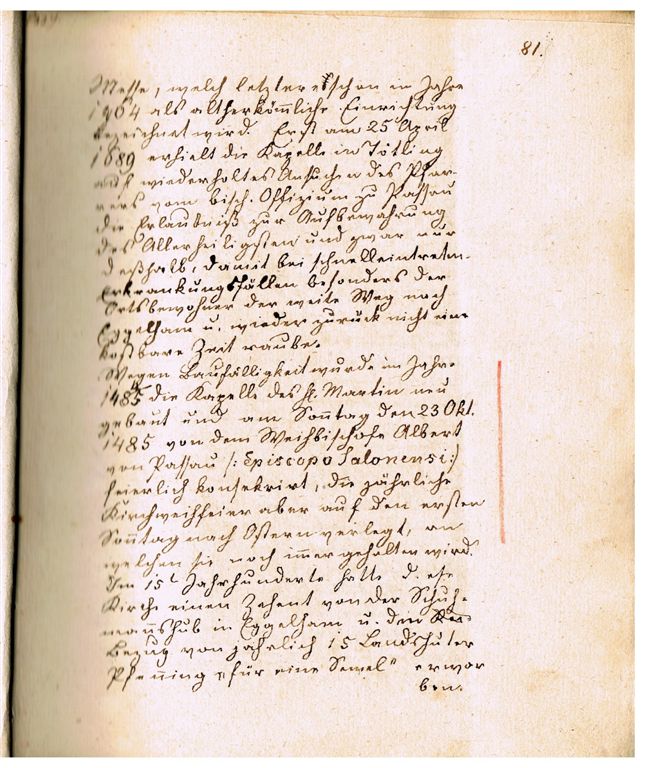 81.
Messe, welch letztere schon im Jahre
1464 als altherkömmliche Einrichtung
bezeichnet wird. Erst am 25 April
1689 erhielt die Kapelle in Tötling
auf wiederholtes Ansuchen des Pfar-
rers vom bisch. Offizium zu Passau
die Erlaubniß zur Aufbewahrung
des Allerheiligsten und zwar nur
deßhalb, damit bei schnelleintretn.
Erkrankungsfällen besonders der
Ortsbewohner der weite Weg nach
Eggelham u. wieder zurück nicht eine
kostbare Zeit raube.
Wegen Baufälligkeit wurde im Jahre
1485 die Kapelle des hl. Martin neu
gebaut und am Sonntag den 23 Okt.
1485 von dem Weihbischofe Albert
von Passau /: Episcopo Salonensi :/
feierlich konsekrirt, die jährliche
Kirchweihfeier aber auf den ersten
Sonntag nach Ostern verlegt, an
welchen sie noch immer gehalten wird.
Im 15t Jahrhunderte hatte d.
Kirche einen Zehent von der Schuh-
mannshub in Eggelham u. den
Bezug von jährlich 15 Landshuter
Pfenning „für eine Semel" erwor
ben.